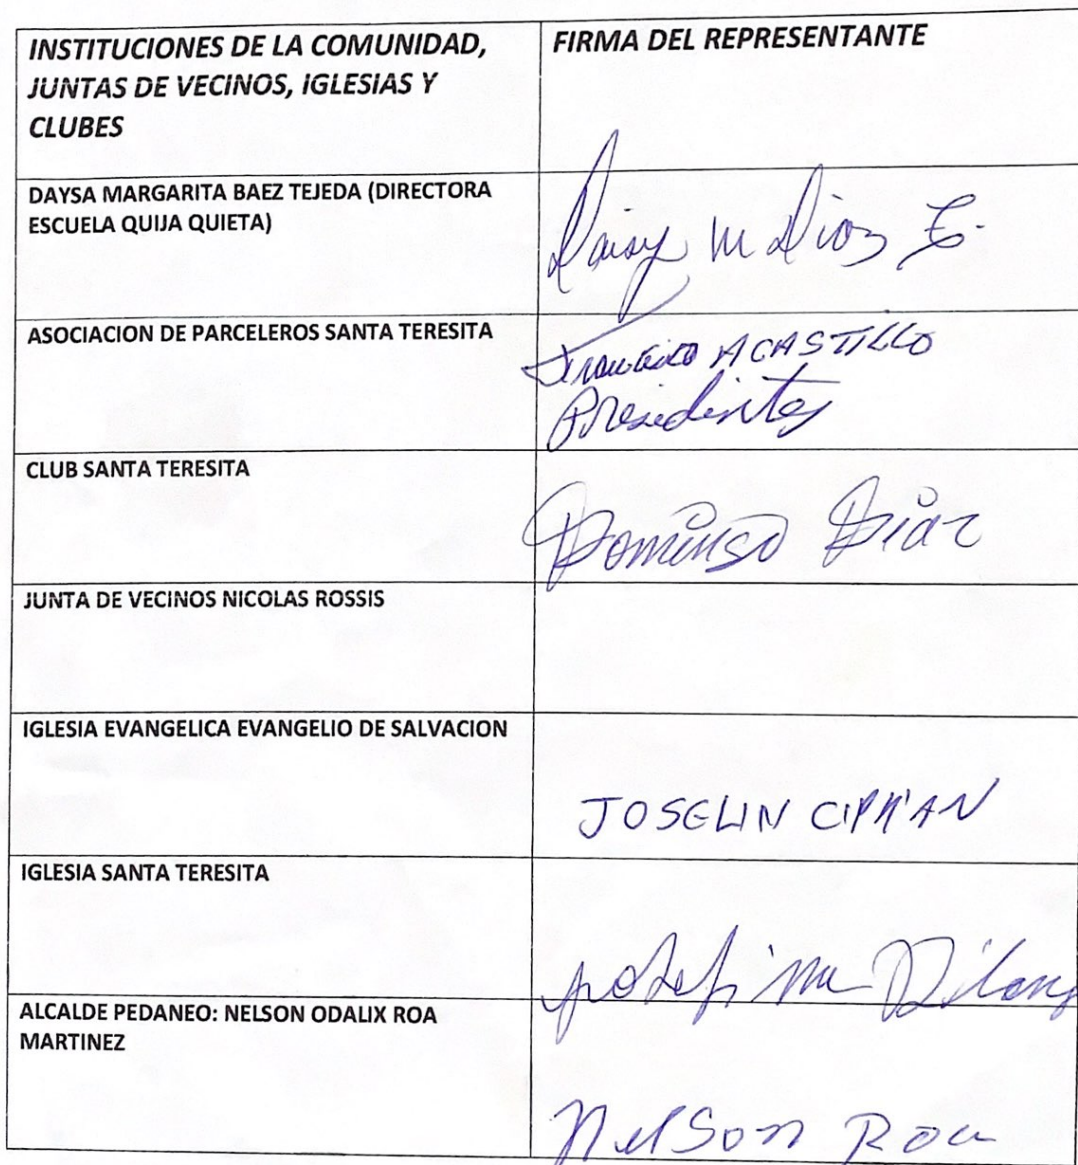 INSTITUCIONES DE LA COMUNIDAD,
JUNTAS DE VECINOS, IGLESIAS Y
CLUBES
FIRMA DEL REPRESENTANTE
DAYSA MARGARITA BAEZ TEJEDA (DIRECTORA
ESCUELA QUIJA QUIETA)
Daisy M Dioz
ASOCIACION DE PARCELEROS SANTA TERESITA
Francisco A CASTILLO
Presidente
CLUB SANTA TERESITA
Domingo Diaz
JUNTA DE VECINOS NICOLAS ROSSIS
IGLESIA EVANGELICA EVANGELIO DE SALVACION
JOSELIN CIPRIAN
IGLESIA SANTA TERESITA
ALCALDE PEDANEO: NELSON ODALIX ROA
MARTINEZ
Nelson Roa